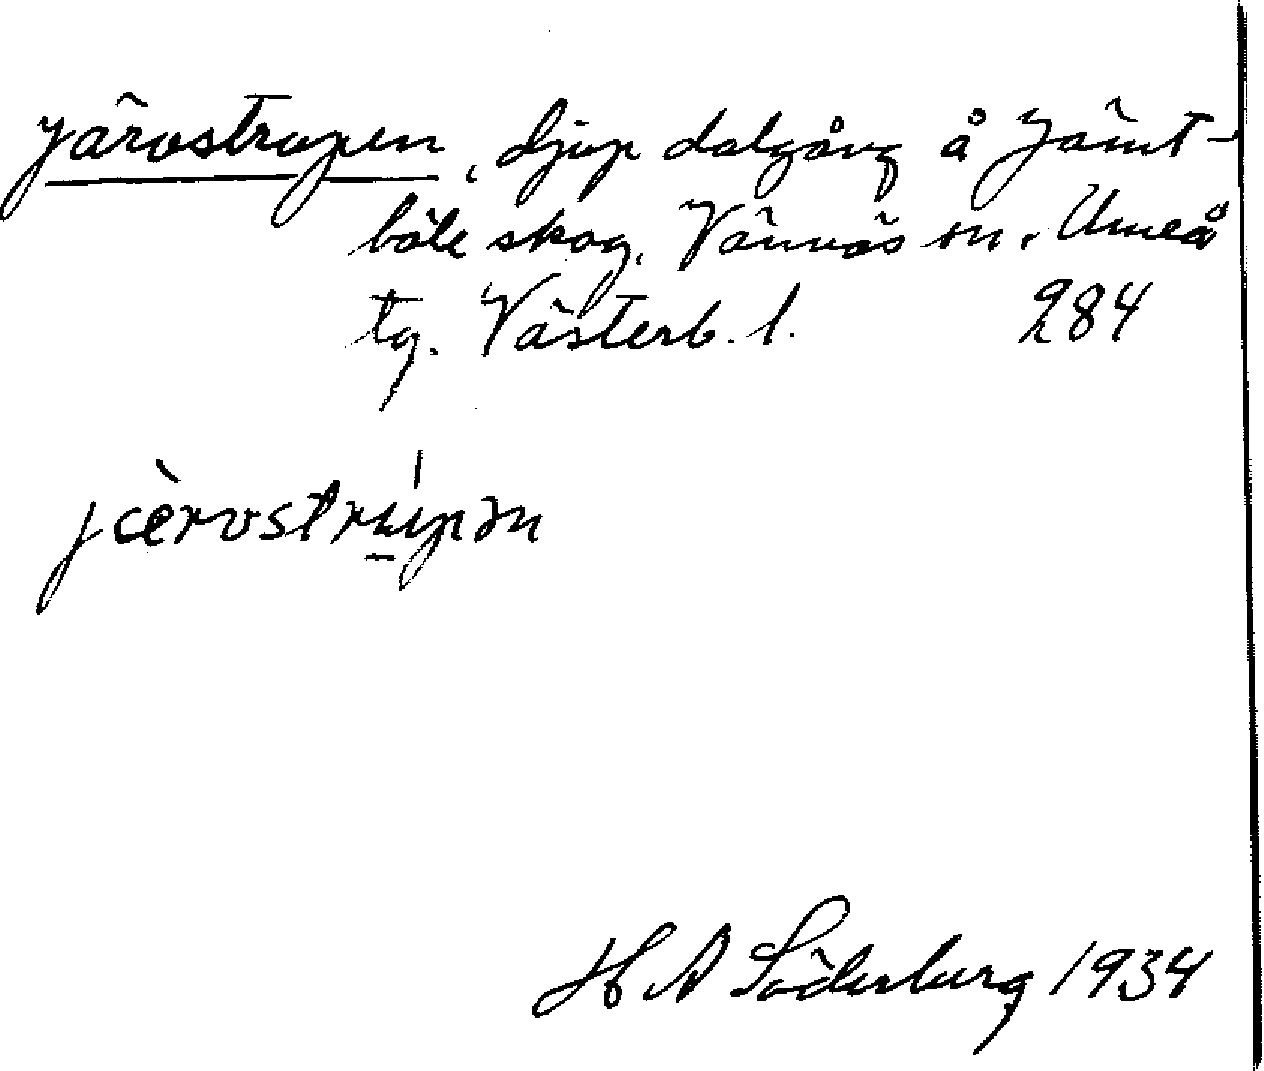 Järvstrupen, djup dalgång å Jämt-
böle skog, Vännäs sn. Umeå
tg. Västerb. l. 284
jæ̀rvstrú̱pən
H A Söderberg 1934